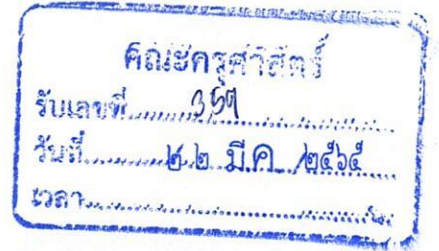 คณะครุศาสตร์
รับเลขที่
วันที่ ๒๒ มี.ค. ๒๕๖๕
เวลา น.